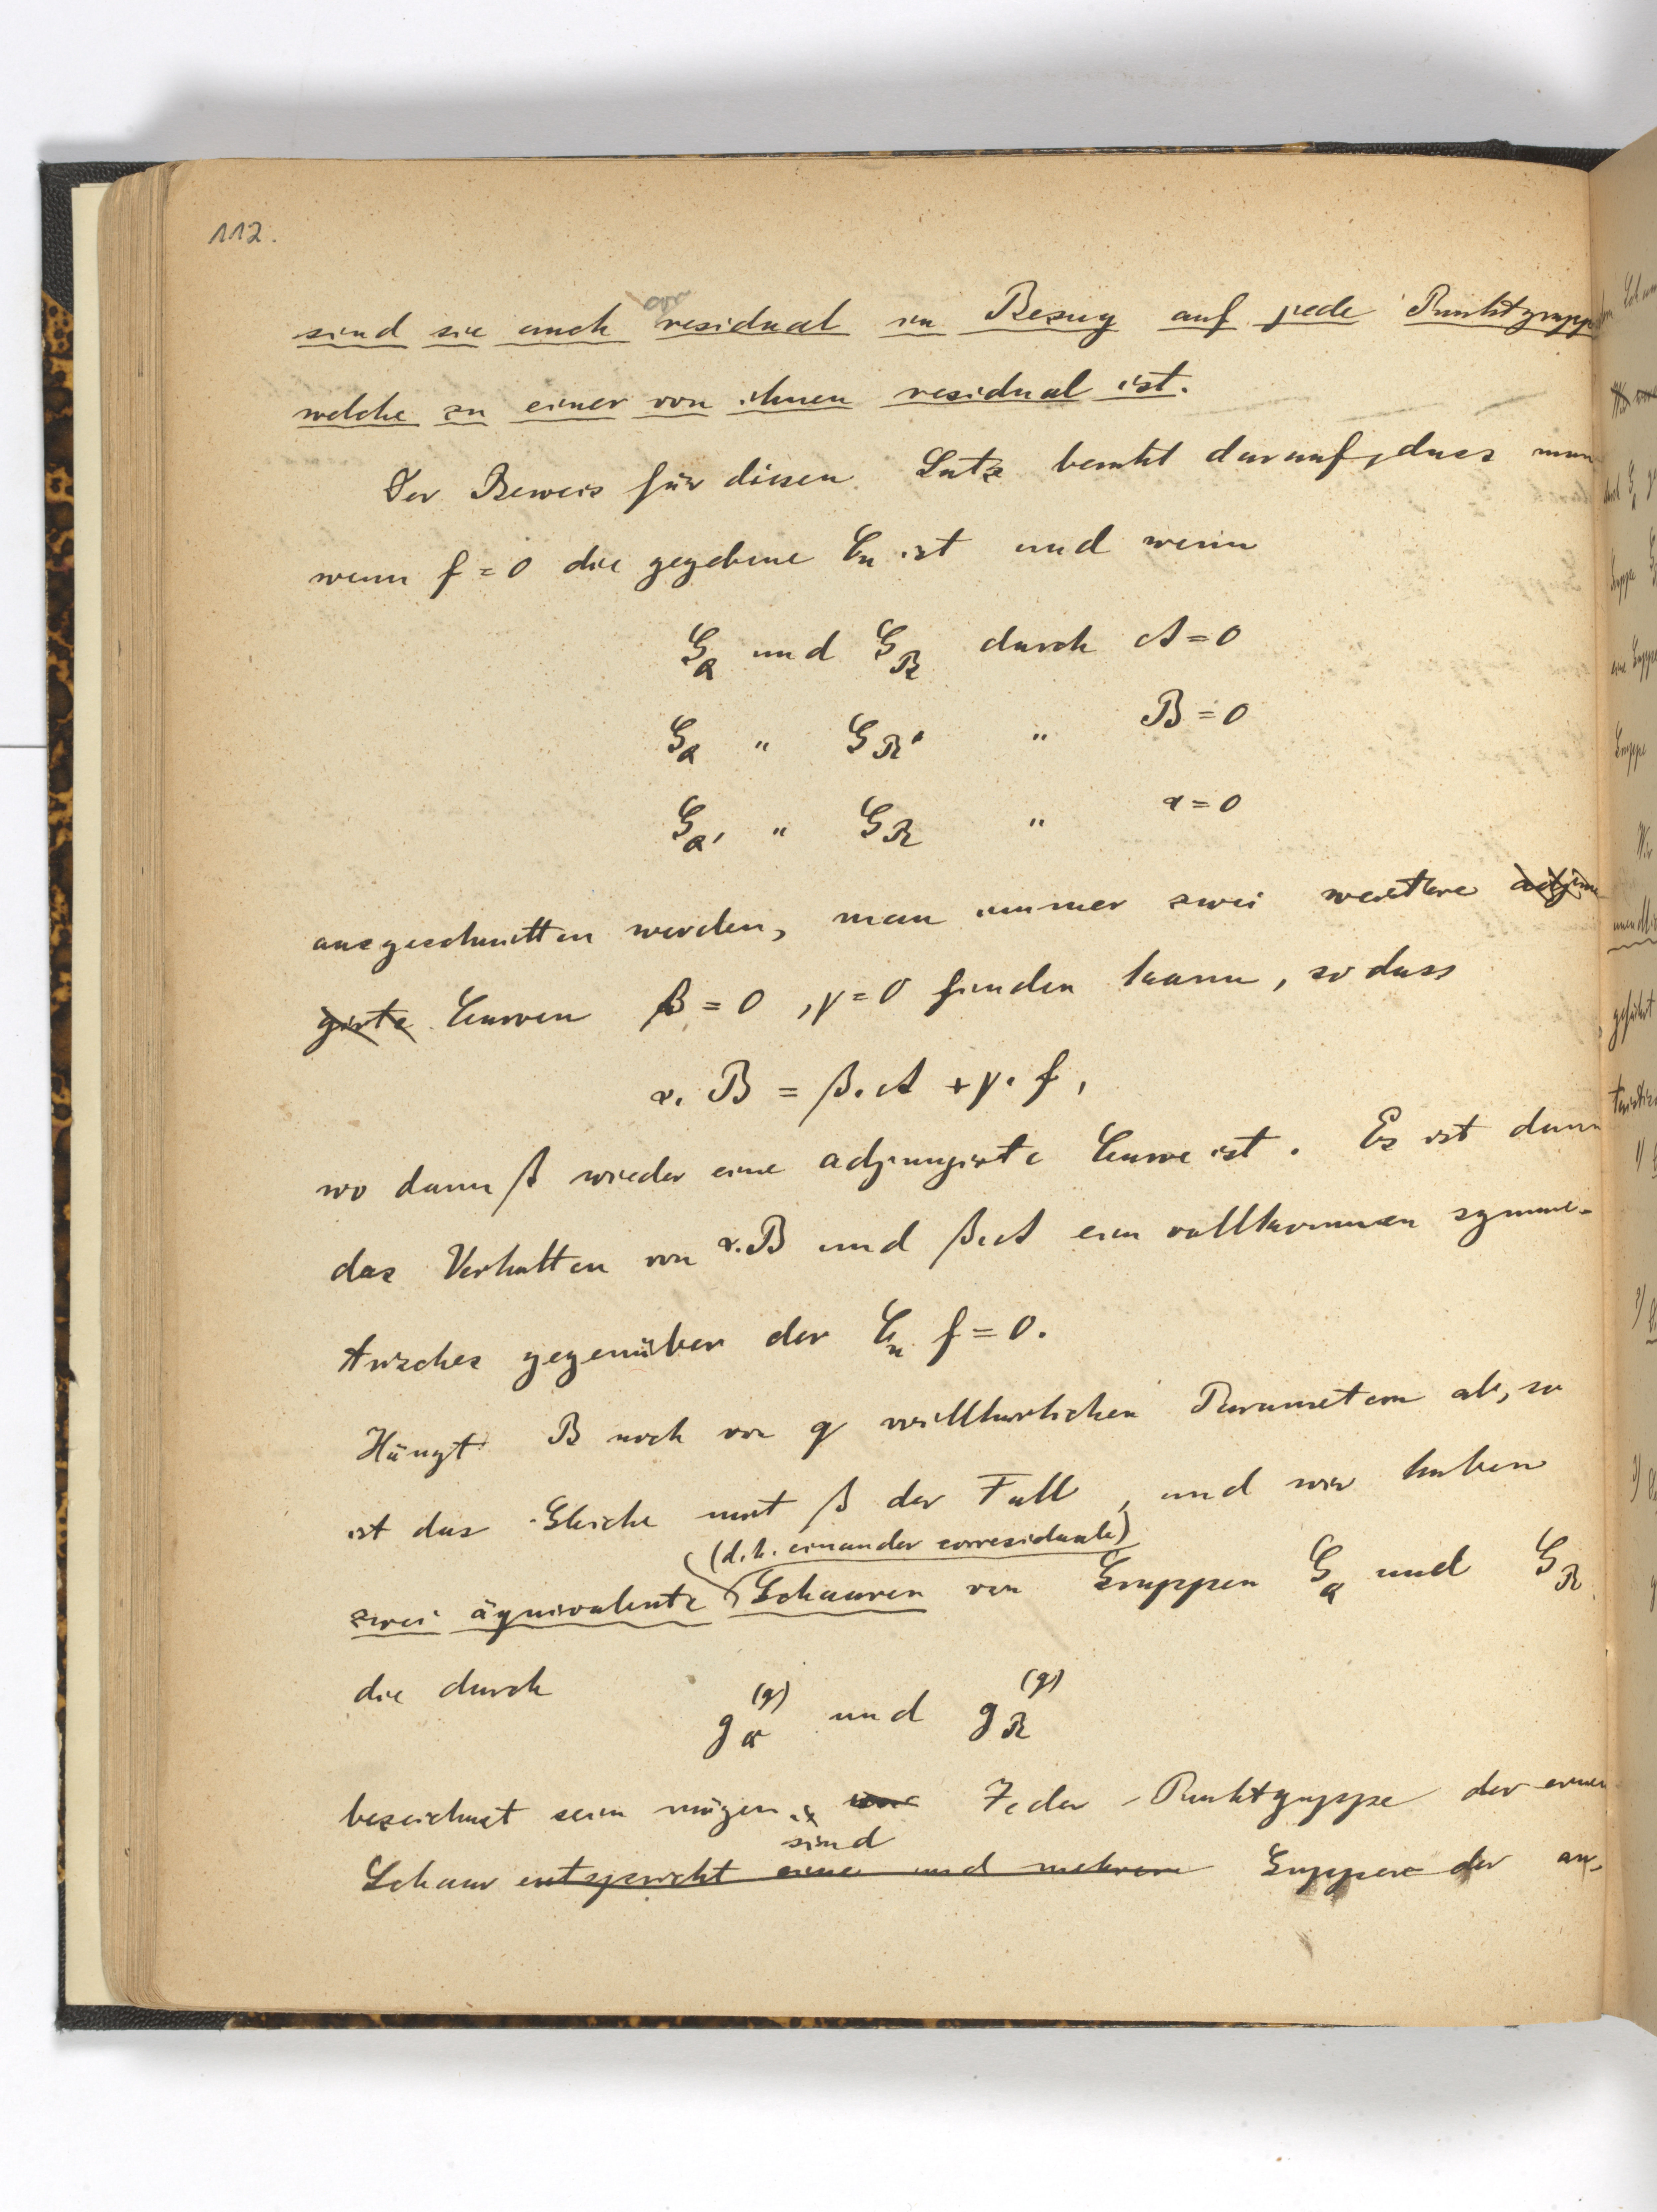 112.
sind sie auch residual in Bezug auf jede Punktgruppe
welche zu einer von ihnen residual ist.
Der Beweis für diesen Satz beruht darauf, dass man
wenn f = 0 die gegebene Cn ist und wenn
G_Q und G_R durch A = 0
G_Q " G_R' " B = 0
G_Q' " G_R " α = 0
ausgeschnitten werden, man immer zwei weitere adjun
girte Curven β = 0, γ = 0 finden kann, so dass
α. B = β. A + γ. f,
wo dann β wieder eine adjungirte Curve ist. Es ist dann
das Verhalten von α. B und β. A ein vollkommen symme-
trisches gegenüber der Cn f = 0.
Hängt B noch von q willkürlichen Parametern ab, so
ist das Gleiche mit β der Fall, und wir haben
(d. h. einander corresiduale)
zwei äquivalente Schaaren von Gruppen G_Q und G_R
die durch
g_Q^(q) und g_R^(q)
bezeichnet sein mögen. Jeder Punktgruppe der einen
sind
Schaar entspricht eine und mehrere Gruppen der an-